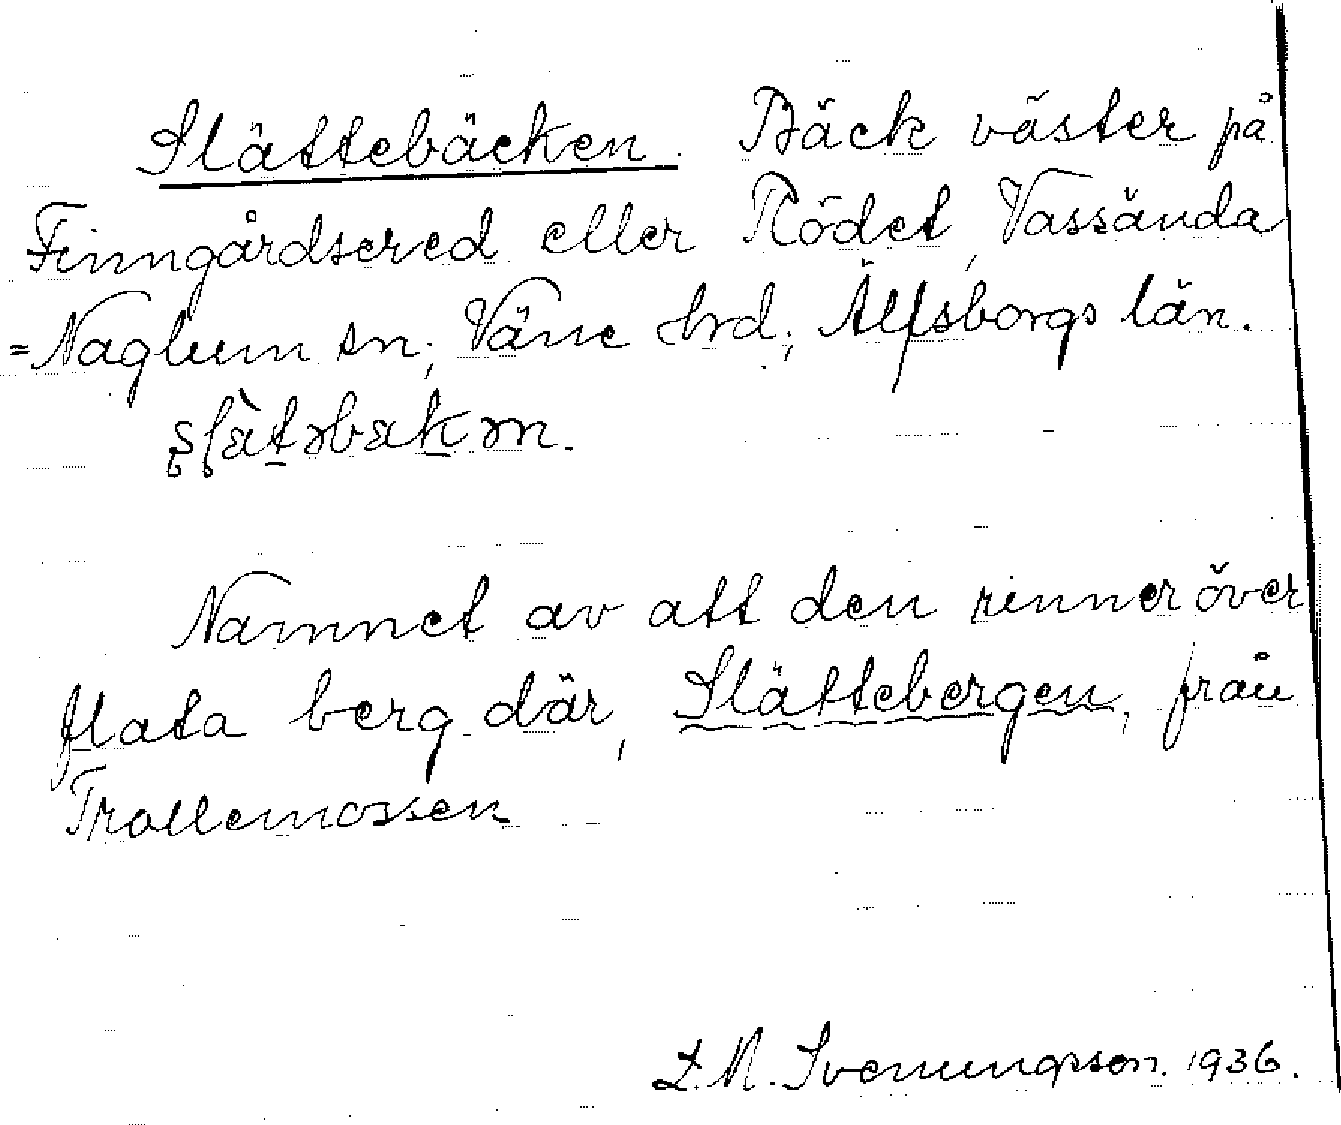 Slättebäcken. Bäck väster på
Finngårdsered eller Rödet, Vassända
=Naglum sn, Väne hrd, Älfsborgs län.
Namnet av att den rinner över
flata berg där, Slättebergen, från
Trollemossen
L. M. Svenungsson. 1936.